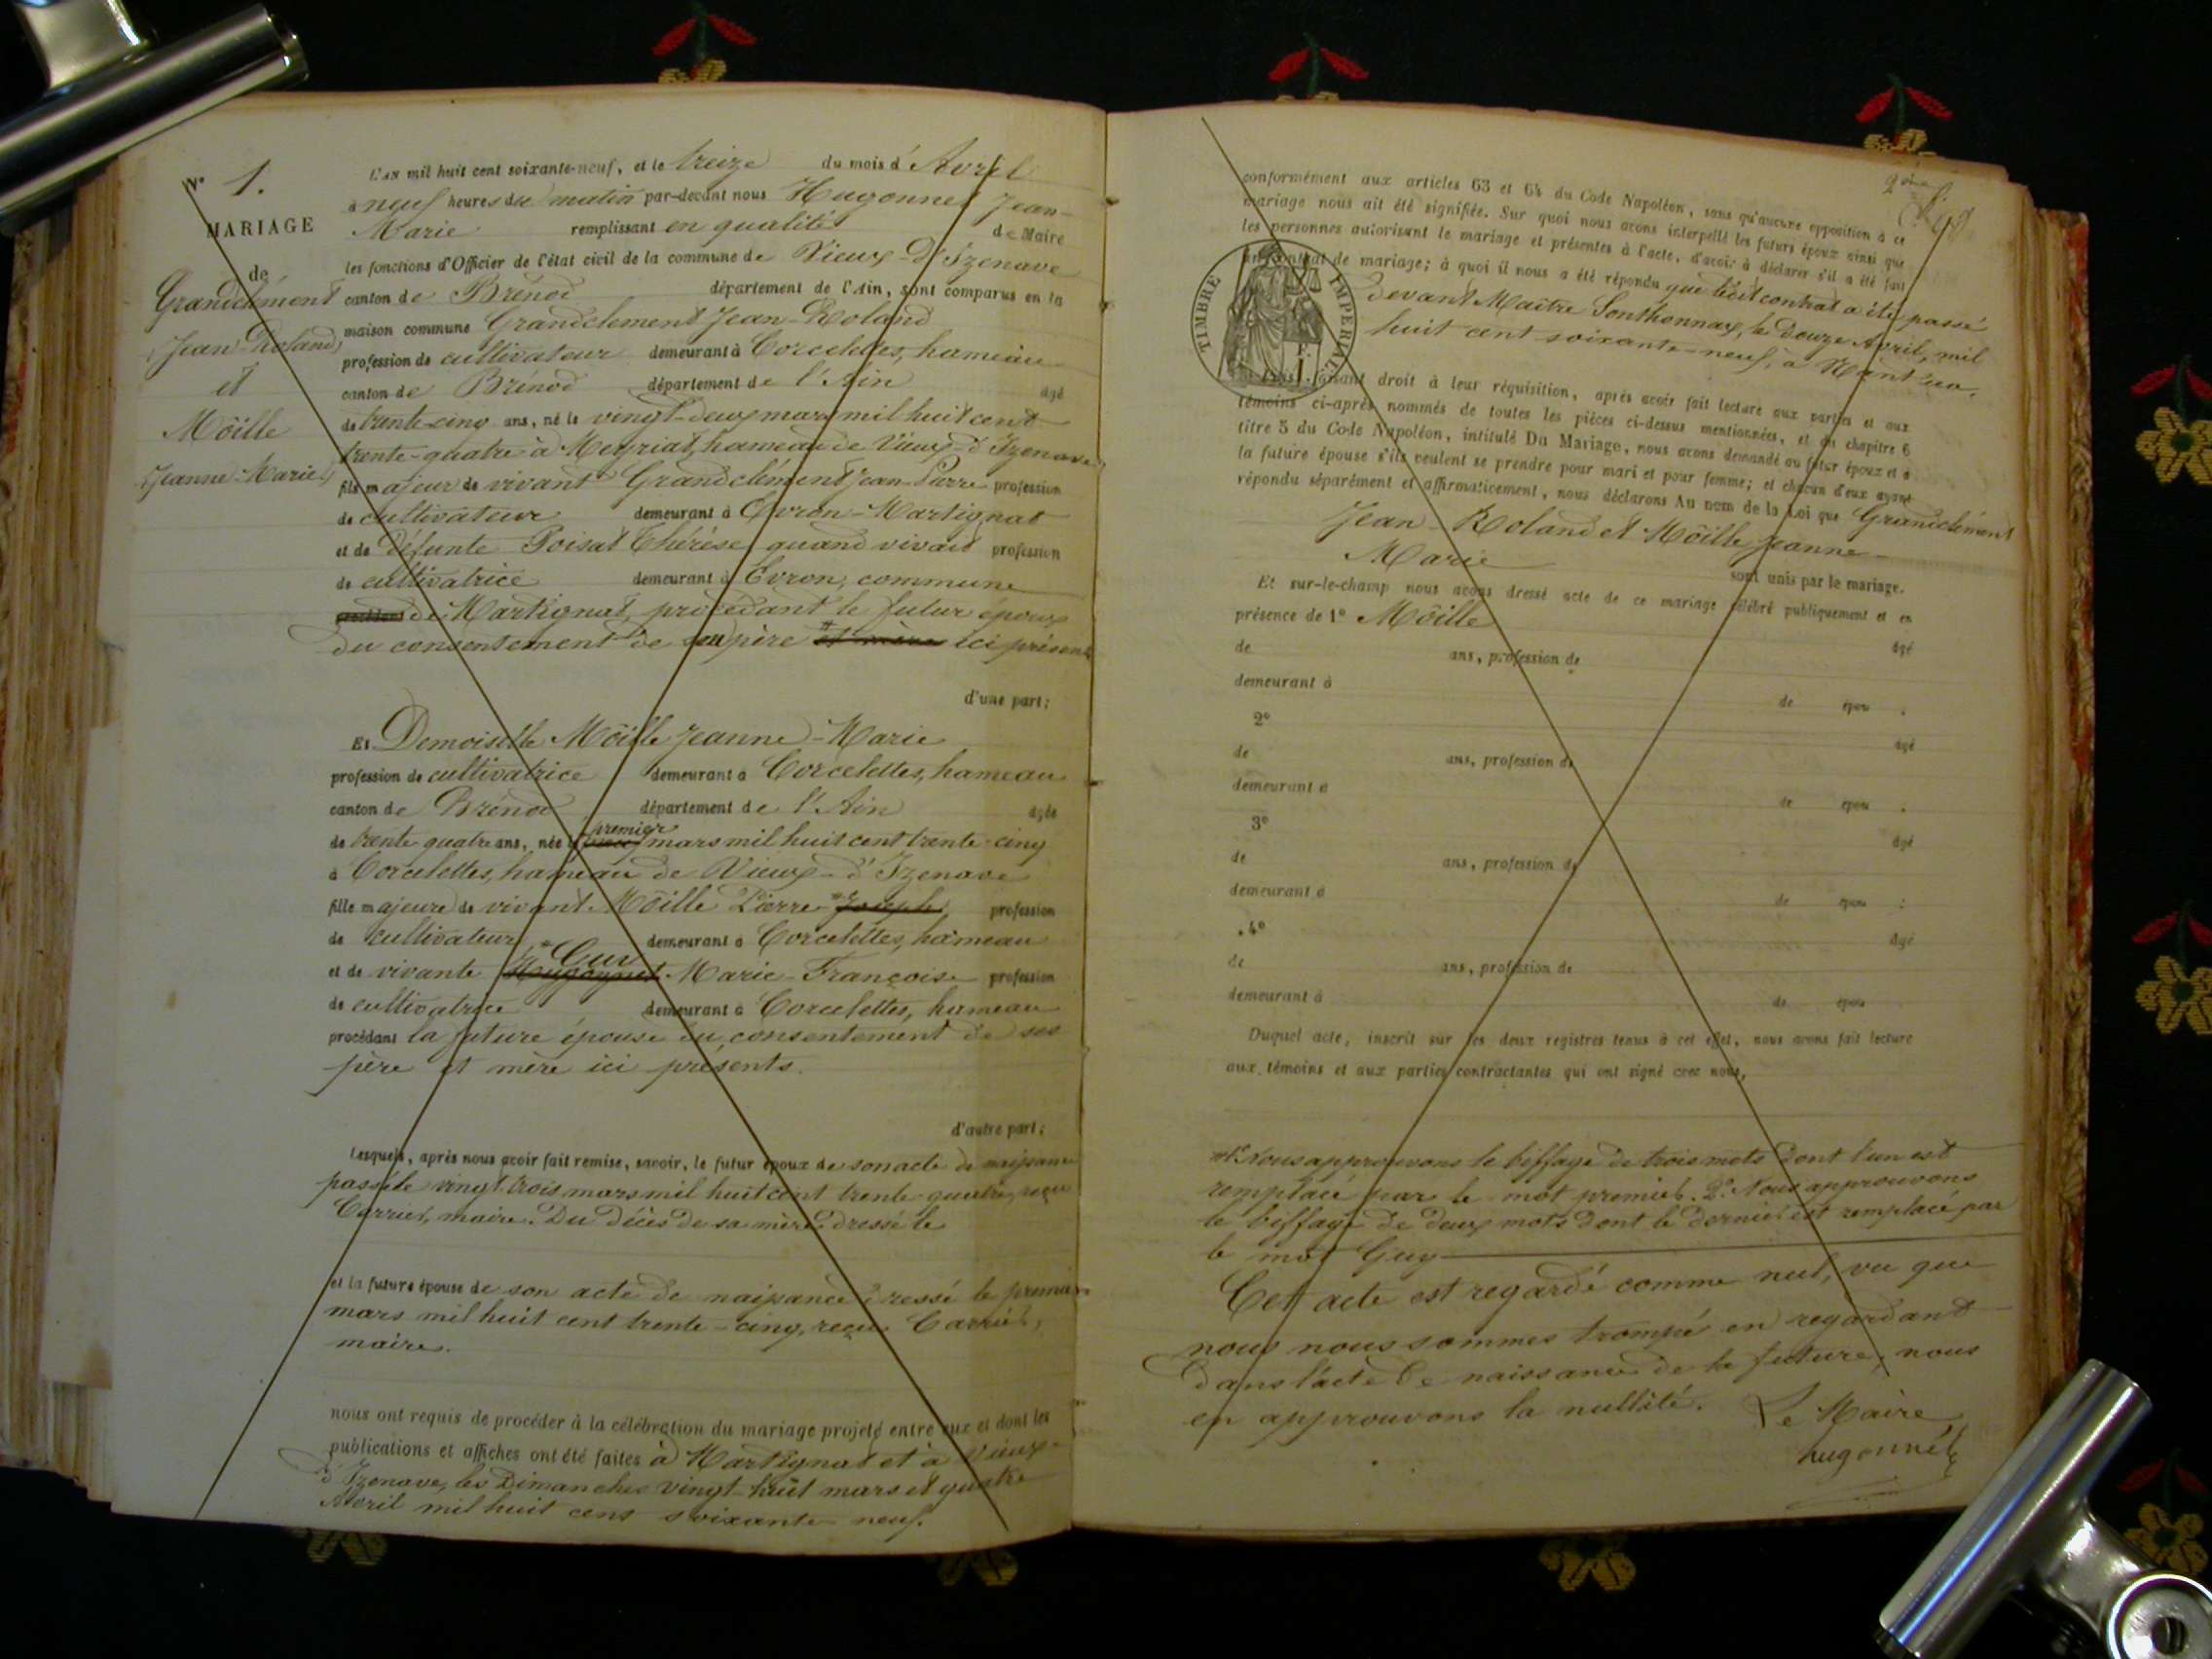 N° 1.
MARIAGE
de
Grandclément
Jean-Roland
et
Möille
Jeanne-Marie
L'AN mil huit cent soixante-neuf, et le treize du mois d'Avril
à neuf heures du matin par-devant nous Hugonnet Jean-
Marie remplissant en qualité de Maire
les fonctions d'Officier de l'état civil de la commune de Vieux-D'Izenave
canton de Brénod département de l'Ain, sont comparus en la
maison commune Grandclement Jean-Roland
profession de cultivateur demeurant à Corcelettes, hameau
canton de Brénod département de l'Ain âgé
de trente-cinq ans, né le vingt-deux mars mil huit cent
trente-quatre à Meyriat, hameau de Vieux-d'Izenave
fils majeur de vivant Grandclément Jean-Pierre profession
de cultivateur demeurant à Evron-Martignat
et de défunte Poisat Thérèse, quand vivait profession
de cultivatrice demeurant à Evron, commune
de Martignat, procédant le futur époux
du consentement de son père et mère ici présent
d'une part;
Et Demoiselle Möille Jeanne-Marie
profession de cultivatrice demeurant à Corcelettes, hameau
canton de Brénod département de l'Ain âgée
premier
de trente quatre ans, née le mars mil huit cent trente-cinq
à Corcelettes, hameau de Vieux-d'Izenave
fille majeure de vivant Möille Pierre-Joseph profession
de cultivateur demeurant à Corcelettes, hameau
Guy
et de vivante Hugonnet Marie-Françoise profession
de cultivatrice demeurant à Corcelettes, hameau
procédant la future épouse du consentement de ses
père et mère ici présents.
d'autre part;
Lesquels, après nous avoir fait remise, savoir, le futur époux de son acte de naissance
passé le vingt trois mars mil huit cent trente-quatre, reçu
Carrier, maire. Du décès de sa mère, dressé le
et la future épouse de son acte de naissance dressé le premier
mars mil huit cent trente-cinq, reçu Carrier,
maire.
nous ont requis de procéder à la célébration du mariage projeté entre eux et dont les
publications et affiches ont été faites à Martignat et à Vieux-
d'Izenave, les Dimanches vingt-huit mars et quatre
Avril mil huit cent soixante-neuf.
conformément aux articles 63 et 64 du Code Napoléon, sans qu'aucune opposition à ce
mariage nous ait été signifiée. Sur quoi nous avons interpellé les futurs époux ainsi que
les personnes autorisant le mariage et présentes à l'acte, d'avoir à déclarer s'il a été fait
un contrat de mariage; à quoi il nous a été répondu que ledit contrat a été passé
devant Maître Sonthonnax, le douze Avril, mil
huit cent soixante-neuf, à Nantua.
TIMBRE IMPERIAL
faisant droit à leur réquisition, après avoir fait lecture aux parties et aux
témoins ci-après nommés de toutes les pièces ci-dessus mentionnées, et du chapitre 6
titre 5 du Code Napoléon, intitulé Du Mariage, nous avons demandé au futur époux et à
la future épouse s'ils veulent se prendre pour mari et pour femme; et chacun d'eux ayant
répondu séparément et affirmativement, nous déclarons Au nom de la Loi que Grandclément
Jean-Roland et Möille Jeanne-
Marie
sont unis par le mariage.
Et sur-le-champ nous avons dressé acte de ce mariage célébré publiquement et en
présence de 1° Möille
âgé
de ans, profession de
demeurant à de épou ;
2° âgé
de ans, profession de
demeurant à de épou ;
3° âgé
de ans, profession de
demeurant à de épou ;
4° âgé
de ans, profession de
demeurant à de épou
Duquel acte, inscrit sur les deux registres tenus à cet effet, nous avons fait lecture
aux témoins et aux parties contractantes qui ont signé avec nous,
Nous approuvons le biffage de trois mots dont l'un est
remplacé par le mot premier. 2° Nous approuvons
le biffage de deux mots dont le dernier est remplacé par
le mot Guy
Cet acte est regardé comme nul, vu que
nous nous sommes trompé en regardant
dans l'acte de naissance de la future; nous
en approuvons la nullité. Le Maire
hugonnét